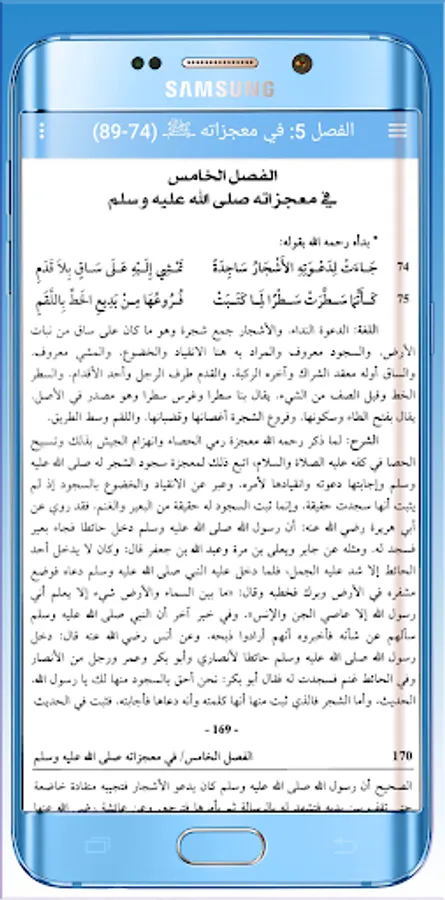 SAMSUNG
الفصل 5: في معجزاته ﷺ (74-89)
الفصل الخامس
في معجزاته صلى الله عليه وسلم
* بدأه رحمه الله بقوله:
74 جَاءَتْ لِدَعْوَتِهِ الأَشْجَارُ سَاجِدَةً تَمْشِي إِلَيْهِ عَلَى سَاقٍ بِلاَ قَدَمِ
75 كَأَنَّمَا سَطَرَتْ سَطْرًا لِمَا كَتَبَتْ فُرُوعُهَا مِنْ بَدِيعِ الخَطِّ بِاللَّقَمِ
اللغة: الدعوة النداء. والأشجار جمع شجرة وهو ما كان على ساق من نبات
الأرض. والسجود معروف والمراد به هنا الانقياد والخضوع. والمشي معروف.
والساق أوله معقد الشراك وآخره الركبة. والقدم طرف الرجل وأحد الأقدام. والسطر
الخط وقيل الصف من الشيء. يقال بنا سطرا وغرس سطرا وهو مصدر في الأصل.
يقال بفتح الطاء وسكونها. وفروع الشجرة أغصانها وقضبانها. واللقم وسط الطريق.
الشرح: لما ذكر رحمه الله معجزة رمي الحصاء وانهزام الجيش بذلك وتسبيح
الحصا في كفه عليه الصلاة والسلام، اتبع ذلك لمعجزة سجود الشجر له صلى الله عليه
وسلم وإجابتها دعوته وانقيادها لأمره. وعبر عن الانقياد والخضوع بالسجود إذ لم
يثبت أنها سجدت حقيقة. وإنما ثبت السجود له حقيقة من البعير والغنم. فقد روي عن
أبي هريرة رضي الله عنه: أن رسول الله صلى الله عليه وسلم دخل حائطا فجاء بعير
فسجد له. ومثله عن جابر ويعلى بن مرة وعبد الله بن جعفر قال: وكان لا يدخل أحد
الحائط إلا شد عليه الجمل، فلما دخل عليه النبي صلى الله عليه وسلم دعاه فوضع
مشفره في الأرض وبرك فخطبه وقال: «ما بين السماء والأرض شيء إلا يعلم أني
رسول الله إلا عاصي الجن والإنس». وفي خبر آخر أن النبي صلى الله عليه وسلم
سألهم عن شأنه فأخبروه أنهم أرادوا ذبحه. وعن أنس رضي الله عنه قال: دخل
رسول الله صلى الله عليه وسلم حائطا لأنصاري وأبو بكر وعمر ورجل من الأنصار
وفي الحائط غنم فسجدت له فقال أبو بكر: نحن أحق بالسجود منها لك يا رسول الله.
الحديث. وأما الشجر فالذي ثبت منها أنها كلمته وأنه دعاها فأجابته. فثبت في الحديث
- 169 -
170 الفصل الخامس/ في معجزاته صلى الله عليه وسلم
الصحيح أن رسول الله صلى الله عليه وسلم كان يدعو الأشجار فتجيبه منقادة خاضعة
حتى تقف بين يديه فتشهد له بالرسالة ثم يأمرها فترجع. وعن عائشة رضي الله عنها